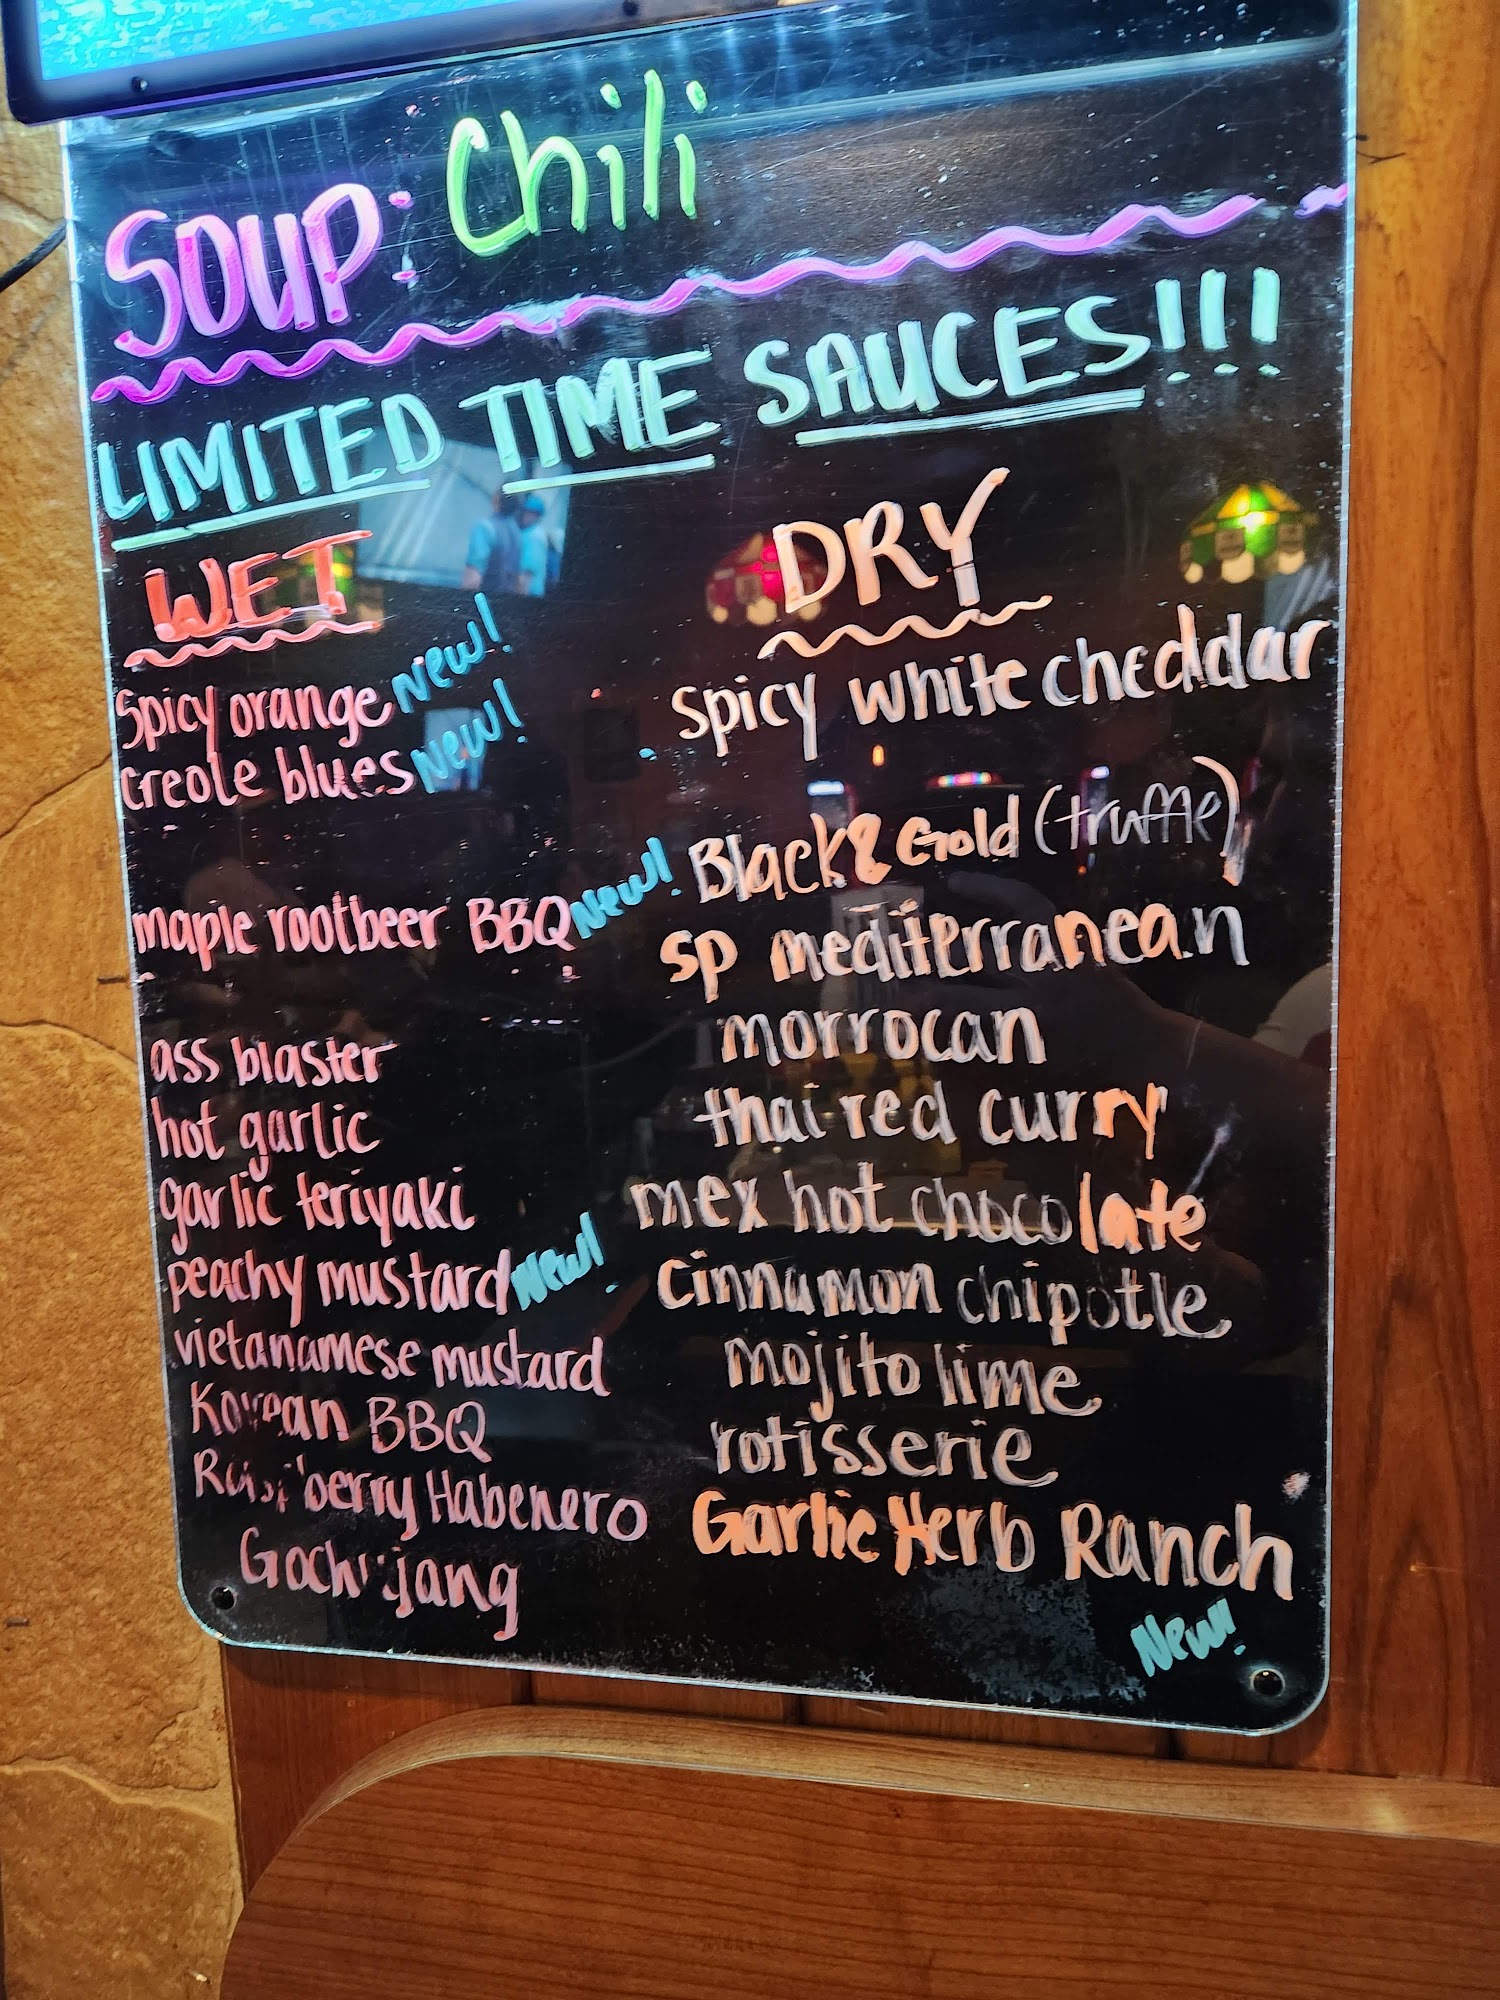 SOUP: Chili
LIMITED TIME SAUCES!!!
WET
Spicy orange New!
creole blues New!
maple rootbeer BBQ New!
ass blaster
hot garlic
garlic teriyaki
peachy mustard New!
vietanamese mustard
Korean BBQ
Raspberry Habenero
Gochujang
DRY
Spicy white cheddar
Black & Gold (truffle)
sp mediterranean
morrocan
thai red curry
mex hot chocolate
cinnamon chipotle
mojito lime
rotisserie
Garlic Herb Ranch
New!